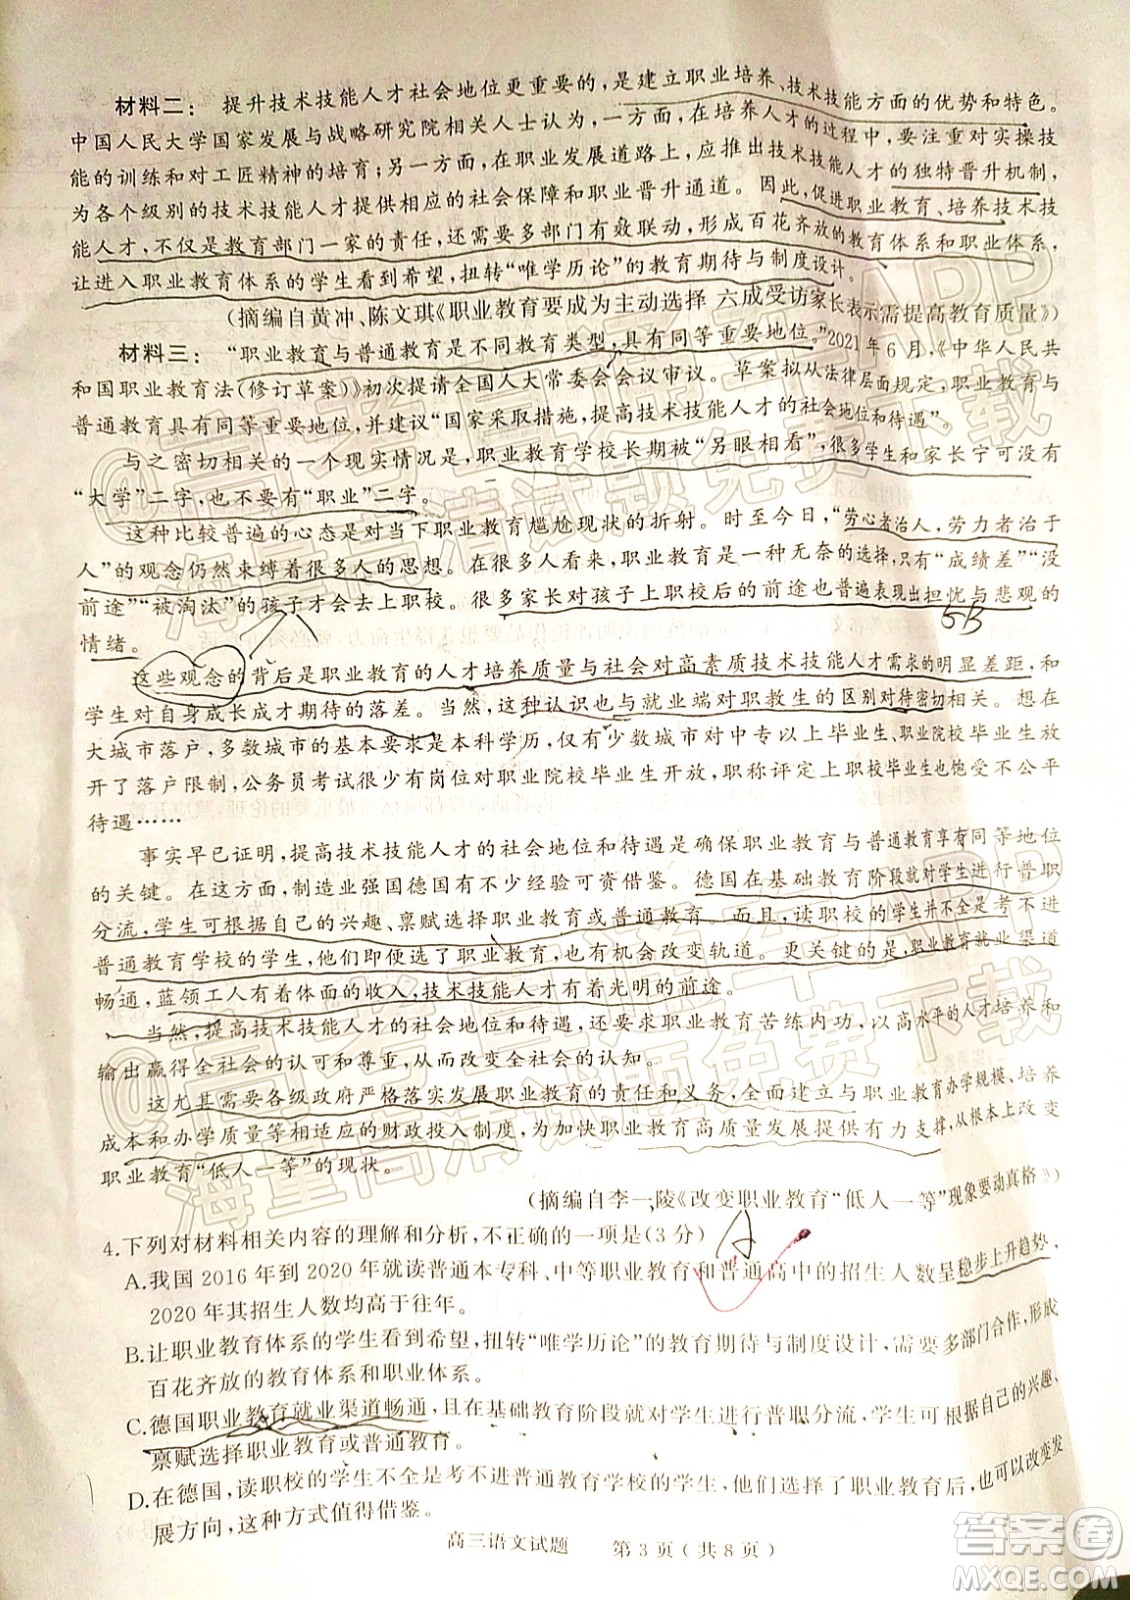 材料二：　提升技术技能人才社会地位更重要的，是建立职业培养、技术技能方面的优势和特色。
中国人民大学国家发展与战略研究院相关人士认为，一方面，在培养人才的过程中，要注重对实操技
能的训练和对工匠精神的培育；另一方面，在职业发展道路上，应推出技术技能人才的独特晋升机制，
为各个级别的技术技能人才提供相应的社会保障和职业晋升通道。因此，促进职业教育、培养技术技
能人才，不仅是教育部门一家的责任，还需要多部门有效联动，形成百花齐放的教育体系和职业体系，
让进入职业教育体系的学生看到希望，扭转“唯学历论”的教育期待与制度设计。
(摘编自黄冲、陈文琪《职业教育要成为主动选择 六成受访家长表示需提高教育质量》)
材料三：　“职业教育与普通教育是不同教育类型，具有同等重要地位。”2021年6月，《中华人民共
和国职业教育法(修订草案)》初次提请全国人大常委会会议审议。草案拟从法律层面规定，职业教育与
普通教育具有同等重要地位，并建议“国家采取措施，提高技术技能人才的社会地位和待遇”。
与之密切相关的一个现实情况是，职业教育学校长期被“另眼相看”，很多学生和家长宁可没有
“大学”二字，也不要有“职业”二字。
这种比较普遍的心态是对当下职业教育尴尬现状的折射。时至今日，“劳心者治人，劳力者治于
人”的观念仍然束缚着很多人的思想。在很多人看来，职业教育是一种无奈的选择，只有“成绩差”“没
前途”“被淘汰”的孩子才会去上职校。很多家长对孩子上职校后的前途也普遍表现出担忧与悲观的
情绪。
5B
这些观念的背后是职业教育的人才培养质量与社会对高素质技术技能人才需求的明显差距，和
学生对自身成长成才期待的落差。当然，这种认识也与就业端对职教生的区别对待密切相关。想在
大城市落户，多数城市的基本要求是本科学历，仅有少数城市对中专以上毕业生、职业院校毕业生
开了落户限制，公务员考试很少有岗位对职业院校毕业生开放，职称评定上职校毕业生也饱受不公平
待遇……
事实早已证明，提高技术技能人才的社会地位和待遇是确保职业教育与普通教育享有同等地位
的关键。在这方面，制造业强国德国有不少经验可资借鉴。德国在基础教育阶段就对学生进行普职
分流，学生可根据自己的兴趣、禀赋选择职业教育或普通教育。而且，读职校的学生并不全是考不进
普通教育学校的学生，他们即使选了职业教育，也有机会改变轨道。更关键的是，职业教育就业渠道
畅通，蓝领工人有着体面的收入，技术技能人才有着光明的前途。
当然，提高技术技能人才的社会地位和待遇，还要求职业教育苦练内功，以高水平的人才培养和
输出赢得全社会的认可和尊重，从而改变全社会的认知。
这尤其需要各级政府严格落实发展职业教育的责任和义务，全面建立与职业教育办学规模、培养
成本和办学质量等相适应的财政投入制度，为加快职业教育高质量发展提供有力支撑，从根本上改变
职业教育“低人一等”的现状。
(摘编自李一陵《改变职业教育“低人一等”现象要动真格》)
4.下列对材料相关内容的理解和分析，不正确的一项是(3分) A
A.我国2016年到2020年就读普通本专科、中等职业教育和普通高中的招生人数呈稳步上升趋势，
2020年其招生人数均高于往年。
B.让职业教育体系的学生看到希望，扭转“唯学历论”的教育期待与制度设计，需要多部门合作，形成
百花齐放的教育体系和职业体系。
C.德国职业教育就业渠道畅通，且在基础教育阶段就对学生进行普职分流，学生可根据自己的兴趣、
禀赋选择职业教育或普通教育。
D.在德国，读职校的学生不全是考不进普通教育学校的学生，他们选择了职业教育后，也可以改变发
展方向，这种方式值得借鉴。
高三语文试题　第3页(共8页)
答案圈
MXQE.COM